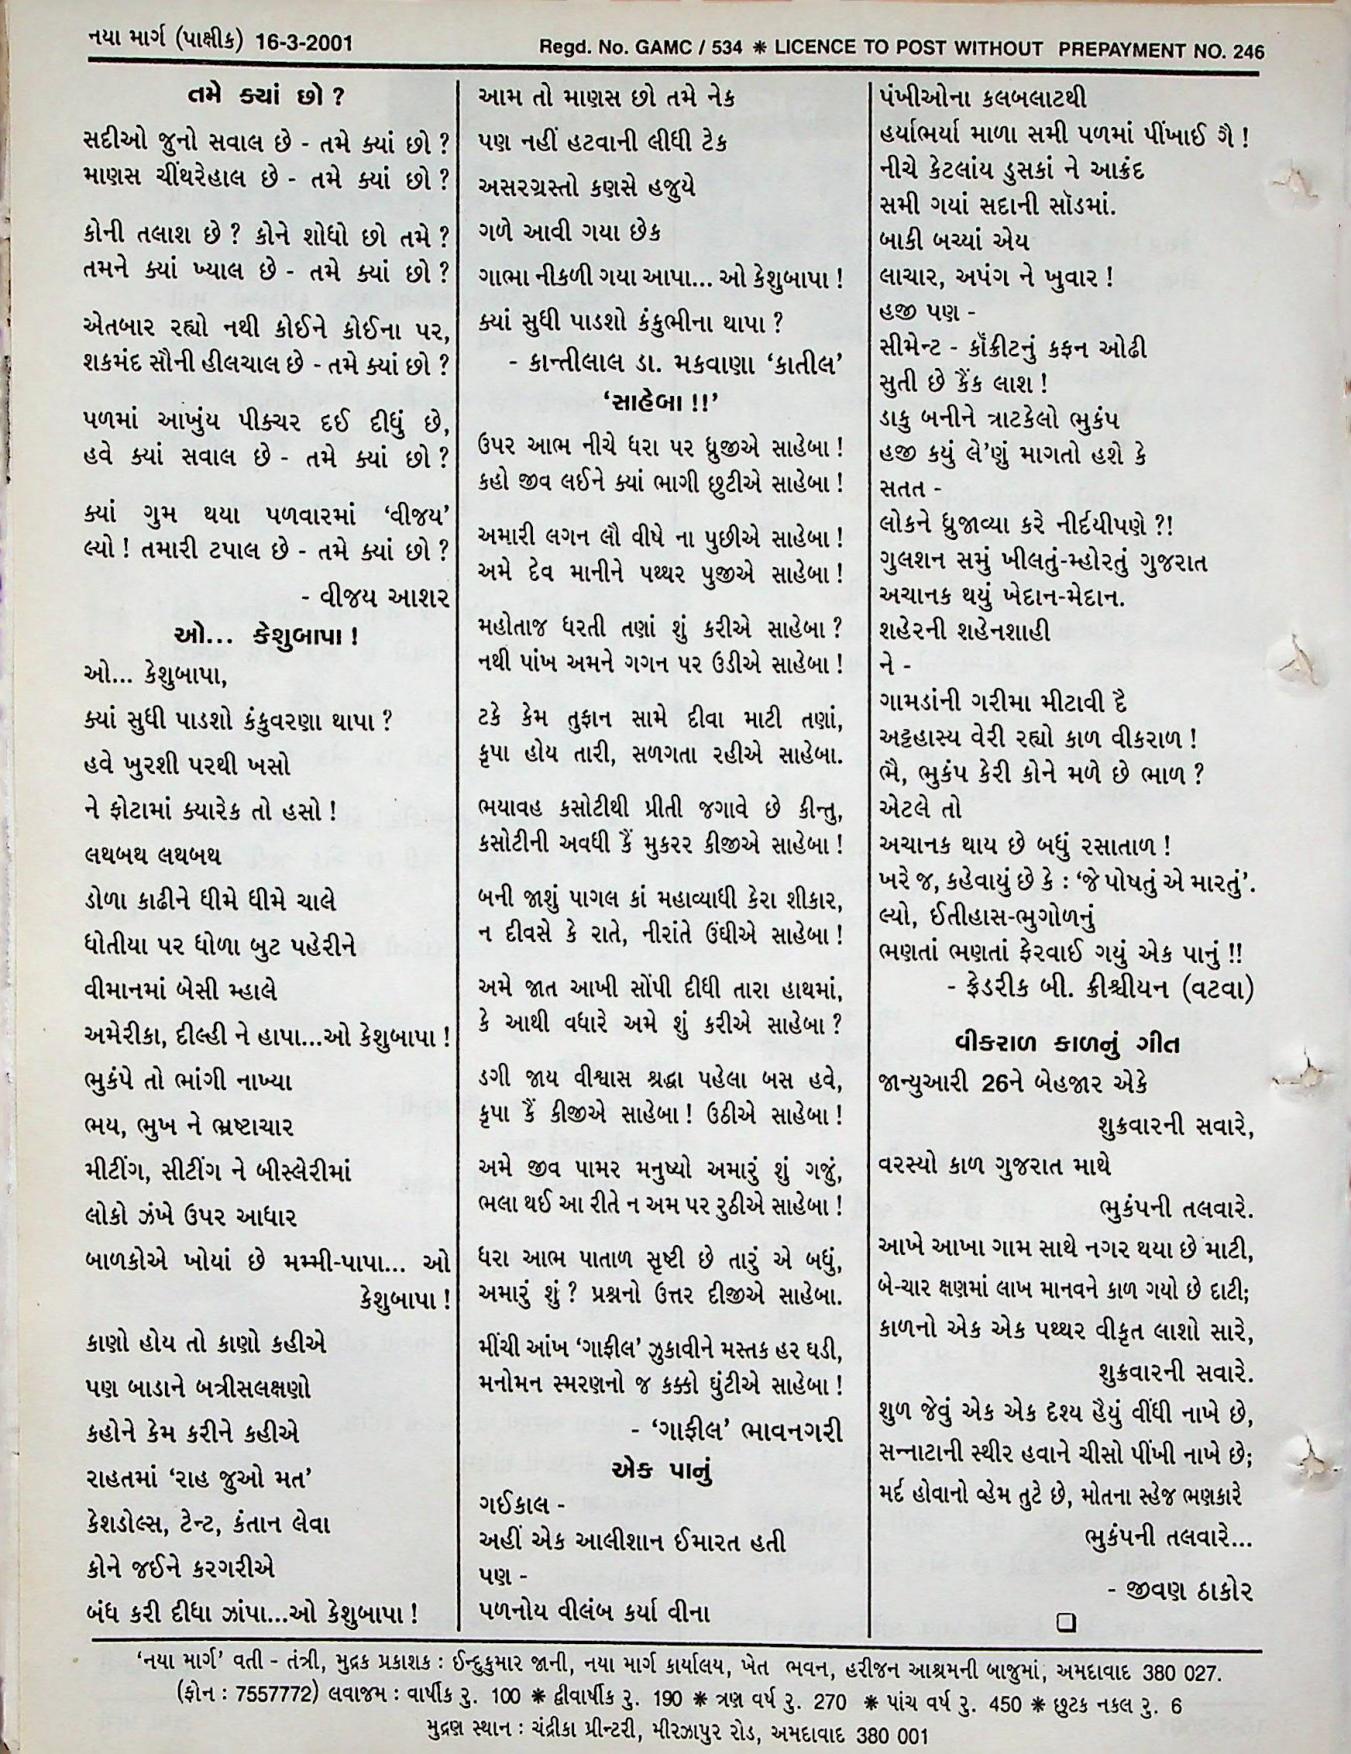 નયા માર્ગ (પાક્ષીક) 16-3-2001
Regd. No. GAMC / 534 ✻ LICENCE TO POST WITHOUT PREPAYMENT NO. 246
તમે ક્યાં છો ?
સદીઓ જુનો સવાલ છે - તમે ક્યાં છો ?
માણસ ચીંથરેહાલ છે - તમે ક્યાં છો ?
કોની તલાશ છે ? કોને શોધો છો તમે ?
તમને ક્યાં ખ્યાલ છે - તમે ક્યાં છો ?
એતબાર રહ્યો નથી કોઈને કોઈના પર,
શકમંદ સૌની હીલચાલ છે - તમે ક્યાં છો ?
પળમાં આખુંય પીક્ચર દઈ દીધું છે,
હવે ક્યાં સવાલ છે - તમે ક્યાં છો ?
ક્યાં ગુમ થયા પળવારમાં ‘વીજય’
લ્યો ! તમારી ટપાલ છે - તમે ક્યાં છો ?
- વીજય આશર
ઓ... કેશુબાપા !
ઓ... કેશુબાપા,
ક્યાં સુધી પાડશો કંકુવરણા થાપા ?
હવે ખુરશી પરથી ખસો
ને ફોટામાં ક્યારેક તો હસો !
લથબથ લથબથ
ડોળા કાઢીને ધીમે ધીમે ચાલે
ધોતીયા પર ધોળા બુટ પહેરીને
વીમાનમાં બેસી મ્હાલે
અમેરીકા, દીલ્હી ને હાપા...ઓ કેશુબાપા !
ભુકંપે તો ભાંગી નાખ્યા
ભય, ભુખ ને ભ્રષ્ટાચાર
મીટીંગ, સીટીંગ ને બીસ્લેરીમાં
લોકો ઝંખે ઉપર આધાર
બાળકોએ ખોયાં છે મમ્મી-પાપા... ઓ
કેશુબાપા !
કાણો હોય તો કાણો કહીએ
પણ બાડાને બત્રીસલક્ષણો
કહોને કેમ કરીને કહીએ
રાહતમાં ‘રાહ જુઓ મત’
કેશડોલ્સ, ટેન્ટ, કંતાન લેવા
કોને જઈને કરગરીએ
બંધ કરી દીધા ઝાંપા...ઓ કેશુબાપા !
આમ તો માણસ છો તમે નેક
પણ નહીં હટવાની લીધી ટેક
અસરગ્રસ્તો કણસે હજુયે
ગળે આવી ગયા છેક
ગાભા નીકળી ગયા આપા... ઓ કેશુબાપા !
ક્યાં સુધી પાડશો કંકુભીના થાપા ?
- કાન્તીલાલ ડા. મકવાણા ‘કાતીલ’
‘સાહેબા !!’
ઉપર આભ નીચે ધરા પર ધ્રુજીએ સાહેબા !
કહો જીવ લઈને ક્યાં ભાગી છુટીએ સાહેબા !
અમારી લગન લૌ વીષે ના પુછીએ સાહેબા !
અમે દેવ માનીને પથ્થર પુજીએ સાહેબા !
મહોતાજ ધરતી તણાં શું કરીએ સાહેબા ?
નથી પાંખ અમને ગગન પર ઉડીએ સાહેબા !
ટકે કેમ તુફાન સામે દીવા માટી તણાં,
કૃપા હોય તારી, સળગતા રહીએ સાહેબા.
ભયાવહ કસોટીથી પ્રીતી જગાવે છે કીન્તુ,
કસોટીની અવધી કૈં મુકરર કીજીએ સાહેબા !
બની જાશું પાગલ કાં મહાવ્યાધી કેરા શીકાર,
ન દીવસે કે રાતે, નીરાંતે ઉંઘીએ સાહેબા !
અમે જાત આખી સોંપી દીધી તારા હાથમાં,
કે આથી વધારે અમે શું કરીએ સાહેબા ?
ડગી જાય વીશ્વાસ શ્રદ્ધા પહેલા બસ હવે,
કૃપા કૈં કીજીએ સાહેબા ! ઉઠીએ સાહેબા !
અમે જીવ પામર મનુષ્યો અમારું શું ગજું,
ભલા થઈ આ રીતે ન અમ પર રુઠીએ સાહેબા !
ધરા આભ પાતાળ સૃષ્ટી છે તારું એ બધું,
અમારું શું ? પ્રશ્નનો ઉત્તર દીજીએ સાહેબા.
મીંચી આંખ ‘ગાફીલ’ ઝુકાવીને મસ્તક હર ઘડી,
મનોમન સ્મરણનો જ કક્કો ઘુંટીએ સાહેબા !
- ‘ગાફીલ’ ભાવનગરી
એક પાનું
ગઈકાલ -
અહીં એક આલીશાન ઈમારત હતી
પણ -
પળનોય વીલંબ કર્યા વીના
પંખીઓના કલબલાટથી
હર્યાભર્યા માળા સમી પળમાં પીંખાઈ ગૈ !
નીચે કેટલાંય ડુસકાં ને આક્રંદ
સમી ગયાં સદાની સૉડમાં.
બાકી બચ્યાં એય
લાચાર, અપંગ ને ખુવાર !
હજી પણ -
સીમેન્ટ - કૉંક્રીટનું કફન ઓઢી
સુતી છે કૈંક લાશ !
ડાકુ બનીને ત્રાટકેલો ભુકંપ
હજી કયું લે’ણું માગતો હશે કે
સતત -
લોકને ધ્રુજાવ્યા કરે નીર્દયીપણે ?!
ગુલશન સમું ખીલતું-મ્હોરતું ગુજરાત
અચાનક થયું ખેદાન-મેદાન.
શહેરની શહેનશાહી
ને -
ગામડાંની ગરીમા મીટાવી દૈ
અટ્ટહાસ્ય વેરી રહ્યો કાળ વીકરાળ !
ભૈ, ભુકંપ કેરી કોને મળે છે ભાળ ?
એટલે તો
અચાનક થાય છે બધું રસાતાળ !
ખરે જ, કહેવાયું છે કે : ‘જે પોષતું એ મારતું’.
લ્યો, ઈતીહાસ-ભુગોળનું
ભણતાં ભણતાં ફેરવાઈ ગયું એક પાનું !!
- ફ્રેડરીક બી. ક્રીશ્ચીયન (વટવા)
વીકરાળ કાળનું ગીત
જાન્યુઆરી 26ને બેહજાર એકે
શુક્રવારની સવારે,
વરસ્યો કાળ ગુજરાત માથે
ભુકંપની તલવારે.
આખે આખા ગામ સાથે નગર થયા છે માટી,
બે-ચાર ક્ષણમાં લાખ માનવને કાળ ગયો છે દાટી;
કાળનો એક એક પથ્થર વીકૃત લાશો સારે,
શુક્રવારની સવારે.
શુળ જેવું એક એક દૃશ્ય હૈયું વીંધી નાખે છે,
સન્નાટાની સ્થીર હવાને ચીસો પીંખી નાખે છે;
મર્દ હોવાનો વ્હેમ તુટે છે, મોતના સ્હેજ ભણકારે
ભુકંપની તલવારે...
- જીવણ ઠાકોર
‘નયા માર્ગ’ વતી - તંત્રી, મુદ્રક પ્રકાશક : ઈન્દુકુમાર જાની, નયા માર્ગ કાર્યાલય, ખેત ભવન, હરીજન આશ્રમની બાજુમાં, અમદાવાદ 380 027.
(ફોન : 7557772) લવાજમ : વાર્ષીક રુ. 100 ✻ દ્વીવાર્ષીક રુ. 190 ✻ ત્રણ વર્ષ રુ. 270 ✻ પાંચ વર્ષ રુ. 450 ✻ છુટક નકલ રુ. 6
મુદ્રણ સ્થાન : ચંદ્રીકા પ્રીન્ટરી, મીરઝાપુર રોડ, અમદાવાદ 380 001